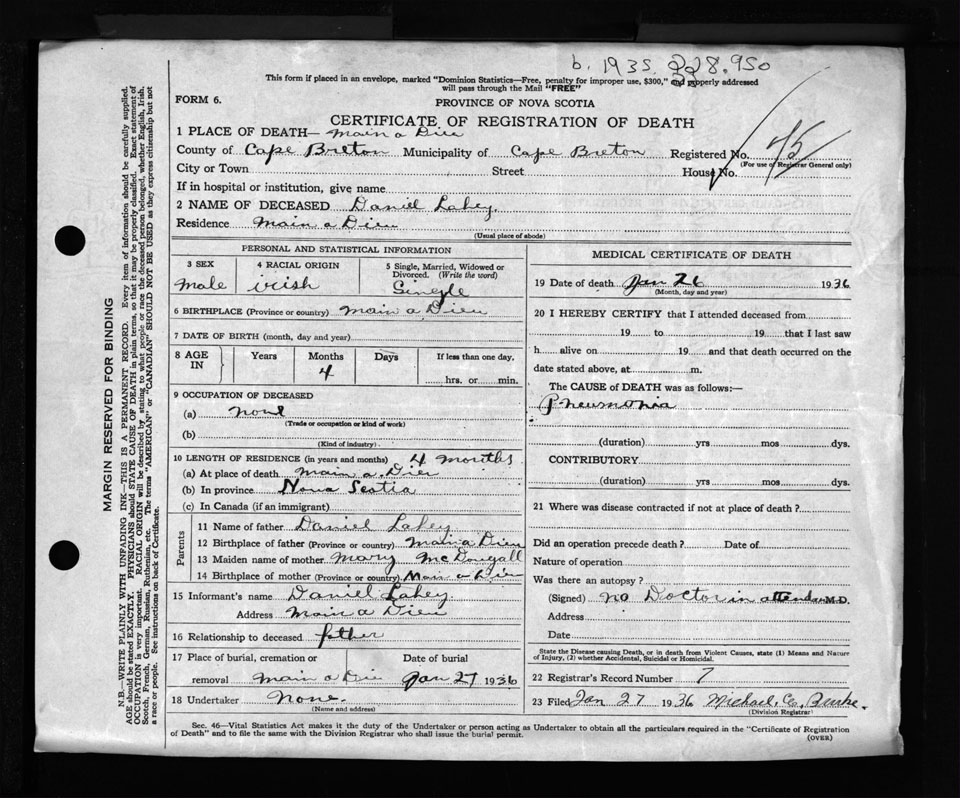 b. 1935. 228.950
This form if placed in an envelope, marked "Dominion Statistics—Free, penalty for improper use, $300," and properly addressed
will pass through the Mail "FREE"
FORM 6.
PROVINCE OF NOVA SCOTIA
CERTIFICATE OF REGISTRATION OF DEATH
1 PLACE OF DEATH— Main a Dieu
County of Cape Breton Municipality of Cape Breton Registered No. 45
(For use of Registrar General only)
City or Town Street House No.
If in hospital or institution, give name
2 NAME OF DECEASED Daniel Lahey.
Residence Main a Dieu
(Usual place of abode)
PERSONAL AND STATISTICAL INFORMATION
3 SEX
male
4 RACIAL ORIGIN
irish
5 Single, Married, Widowed or
Divorced. (Write the word)
Single
6 BIRTHPLACE (Province or country) Main a Dieu
7 DATE OF BIRTH (month, day and year)
8 AGE IN
Years Months Days If less than one day,
4 hrs. or min.
9 OCCUPATION OF DECEASED
(a) none
(Trade or occupation or kind of work)
(b)
(Kind of industry)
10 LENGTH OF RESIDENCE (in years and months) 4 months
(a) At place of death Main a Dieu
(b) In province Nova Scotia
(c) In Canada (if an immigrant)
Parents
11 Name of father Daniel Lahey
12 Birthplace of father (Province or country) Main a Dieu
13 Maiden name of mother Mary McDougall
14 Birthplace of mother (Province or country) Main a Dieu
15 Informant's name Daniel Lahey.
Address Main a Dieu
16 Relationship to deceased father
17 Place of burial, cremation or Date of burial
removal Main a Dieu Jan 27 1936
18 Undertaker None.
(Name and address)
MEDICAL CERTIFICATE OF DEATH
19 Date of death Jan 26 1936
(Month, day and year)
20 I HEREBY CERTIFY that I attended deceased from
19 to 19 that I last saw
h alive on 19 and that death occurred on the
date stated above, at m.
The CAUSE of DEATH was as follows:—
Pneumonia
(duration) yrs mos dys.
CONTRIBUTORY
(duration) yrs mos dys.
21 Where was disease contracted if not at place of death?
Did an operation precede death? Date of
Nature of operation
Was there an autopsy?
(Signed) no Doctor in attendance M.D.
Address
Date
State the Disease causing Death, or in death from Violent Causes, state (1) Means and Nature
of Injury, (2) whether Accidental, Suicidal or Homicidal.
22 Registrar's Record Number 7
23 Filed Jan 27 1936 Michael C. Burke.
(Division Registrar)
Sec. 46—Vital Statistics Act makes it the duty of the Undertaker or person acting as Undertaker to obtain all the particulars required in the "Certificate of Registration
of Death" and to file the same with the Division Registrar who shall issue the burial permit.
(OVER)
MARGIN RESERVED FOR BINDING
N.B.—WRITE PLAINLY WITH UNFADING INK—THIS IS A PERMANENT RECORD. Every item of information should be carefully supplied.
AGE should be stated EXACTLY. PHYSICIANS should STATE CAUSE OF DEATH in plain terms, so that it may be properly classified. Exact statement of
OCCUPATION is very important. RACIAL ORIGIN will be described by stating to what people or race the deceased person belonged, whether English, Irish,
Scotch, French, German, Russian, Ruthenian, etc. The terms "AMERICAN" or "CANADIAN" SHOULD NOT BE USED as they express citizenship but not
a race or people. See instructions on back of Certificate.